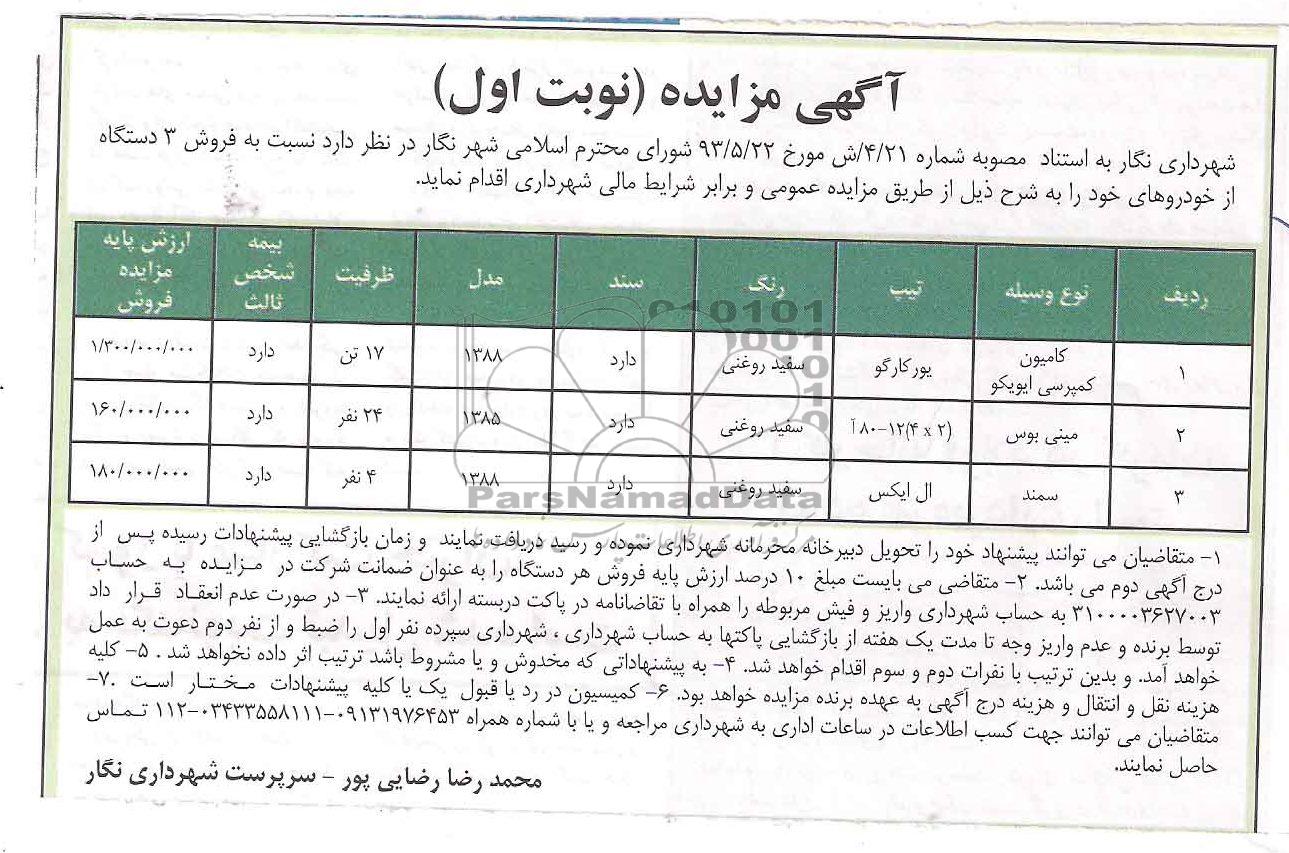 آگهی مزایده (نوبت اول)
شهرداری نگار به استناد مصوبه شماره ۴/۲۱/ش مورخ ۹۳/۵/۲۲ شورای محترم اسلامی شهر نگار در نظر دارد نسبت به فروش ۳ دستگاه
از خودروهای خود را به شرح ذیل از طریق مزایده عمومی و برابر شرایط مالی شهرداری اقدام نماید.
ردیف نوع وسیله تیپ رنگ سند مدل ظرفیت بیمه شخص ثالث ارزش پایه مزایده فروش
۱ کامیون کمپرسی ایویکو یورکارگو سفید روغنی دارد ۱۳۸۸ ۱۷ تن دارد ۱/۳۰۰/۰۰۰/۰۰۰
۲ مینی بوس (۲ x ۴)۱۲-۸۰ آ سفید روغنی دارد ۱۳۸۵ ۲۴ نفر دارد ۱۶۰/۰۰۰/۰۰۰
۳ سمند ال ایکس سفید روغنی دارد ۱۳۸۸ ۴ نفر دارد ۱۸۰/۰۰۰/۰۰۰
ParsNamadData
۱- متقاضیان می توانند پیشنهاد خود را تحویل دبیرخانه محرمانه شهرداری نموده و رسید دریافت نمایند و زمان بازگشایی پیشنهادات رسیده پس از
درج آگهی دوم می باشد. ۲- متقاضی می بایست مبلغ ۱۰ درصد ارزش پایه فروش هر دستگاه را به عنوان ضمانت شرکت در مزایده به حساب
۳۱۰۰۰۰۳۶۲۷۰۰۳ به حساب شهرداری واریز و فیش مربوطه را همراه با تقاضانامه در پاکت دربسته ارائه نمایند. ۳- در صورت عدم انعقاد قرار داد
توسط برنده و عدم واریز وجه تا مدت یک هفته از بازگشایی پاکتها به حساب شهرداری ، شهرداری سپرده نفر اول را ضبط و از نفر دوم دعوت به عمل
خواهد آمد. و بدین ترتیب با نفرات دوم و سوم اقدام خواهد شد. ۴- به پیشنهاداتی که مخدوش و یا مشروط باشد ترتیب اثر داده نخواهد شد . ۵- کلیه
هزینه نقل و انتقال و هزینه درج آگهی به عهده برنده مزایده خواهد بود. ۶- کمیسیون در رد یا قبول یک یا کلیه پیشنهادات مختار است .۷-
متقاضیان می توانند جهت کسب اطلاعات در ساعات اداری به شهرداری مراجعه و یا با شماره همراه ۰۹۱۳۱۹۷۶۴۵۳-۰۳۴۳۳۵۵۸۱۱۱-۱۱۲ تماس
حاصل نمایند.
محمد رضا رضایی پور - سرپرست شهرداری نگار